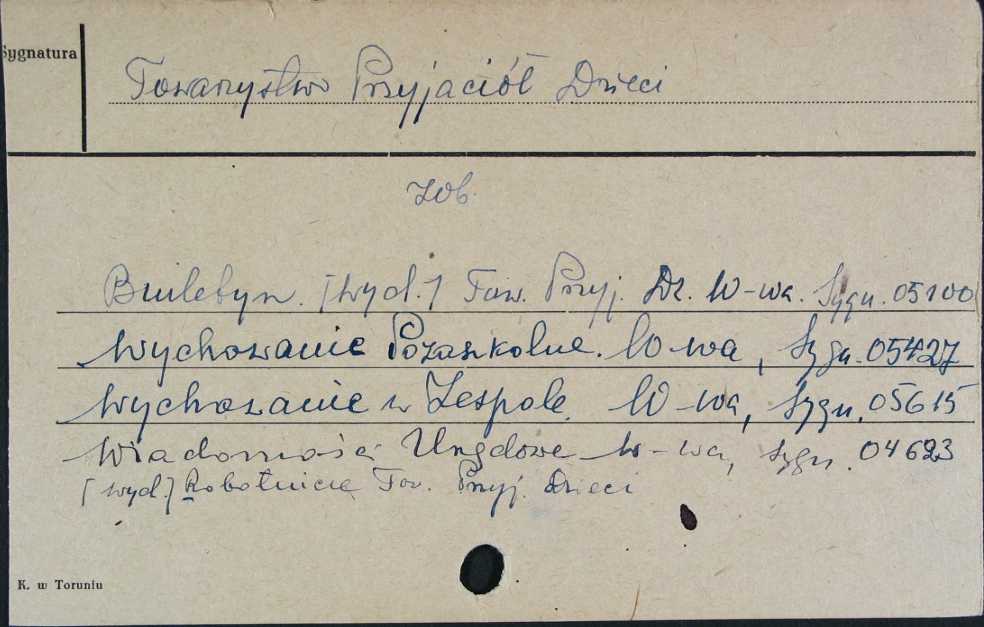 Sygnatura
Towarzystwo Przyjaciół Dzieci
Zob.
Biuletyn. [wyd.] Tow. Przyj. Dz. W-wa. Sygn. 05100
Wychowanie Pozaszkolne. W-wa, Sygn. 05427
Wychowanie w Zespole. W-wa, Sygn. 05615
Wiadomości Urzędowe W-wa, Sygn. 04623
[wyd.] Robotnicze Tow. Przyj. Dzieci
K. w Toruniu